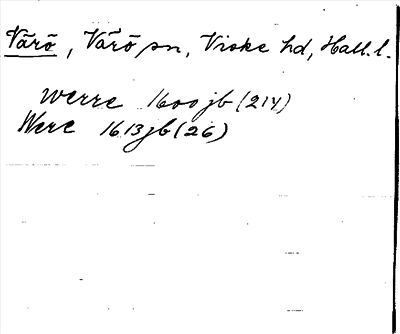 Värö, Värö sn, Viske hd, Hall. l.
Werre 1600 jb (214)
Were 1613 jb (26)